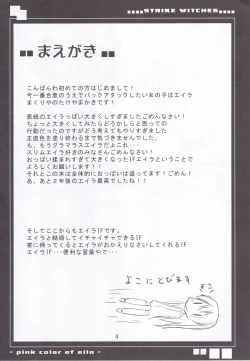 STRIKE WITCHES
まえがき
こんばんわ初めての方はじめまして!
今一番合意のうえでバックアタックしたい女の子はエイラ
まくりやのたけやまかきです!
表紙のエイラっぱい大きくしすぎましたごめんなさい!
ちょっと大きくしてみたらどうかしらと思っての
行動だったのですがどう考えてもやりすぎました
正直色を塗り終わるまで気づきませんでした。
でも、もうグラマラスエイラだよこれ・・・
スリムエイラ好きのみなさんごめんなさい!
おっぱい揉まれすぎて大きくなったIFエイラということで
よろしくお願いします!!
それとこの本は全体的におっぱいは盛ってます!ごめん!
あ、あと2年後のエイラ最高でしたね!
そしてここからもエイラIFです。
エイラと結婚してイチャイチャできるIF
家に帰ってくるとエイラがおかえりなさいしてくれるIF
エイラIF・・・便利な言葉やで・・・
よこにとびます
よこ
4
- pink color of eila -